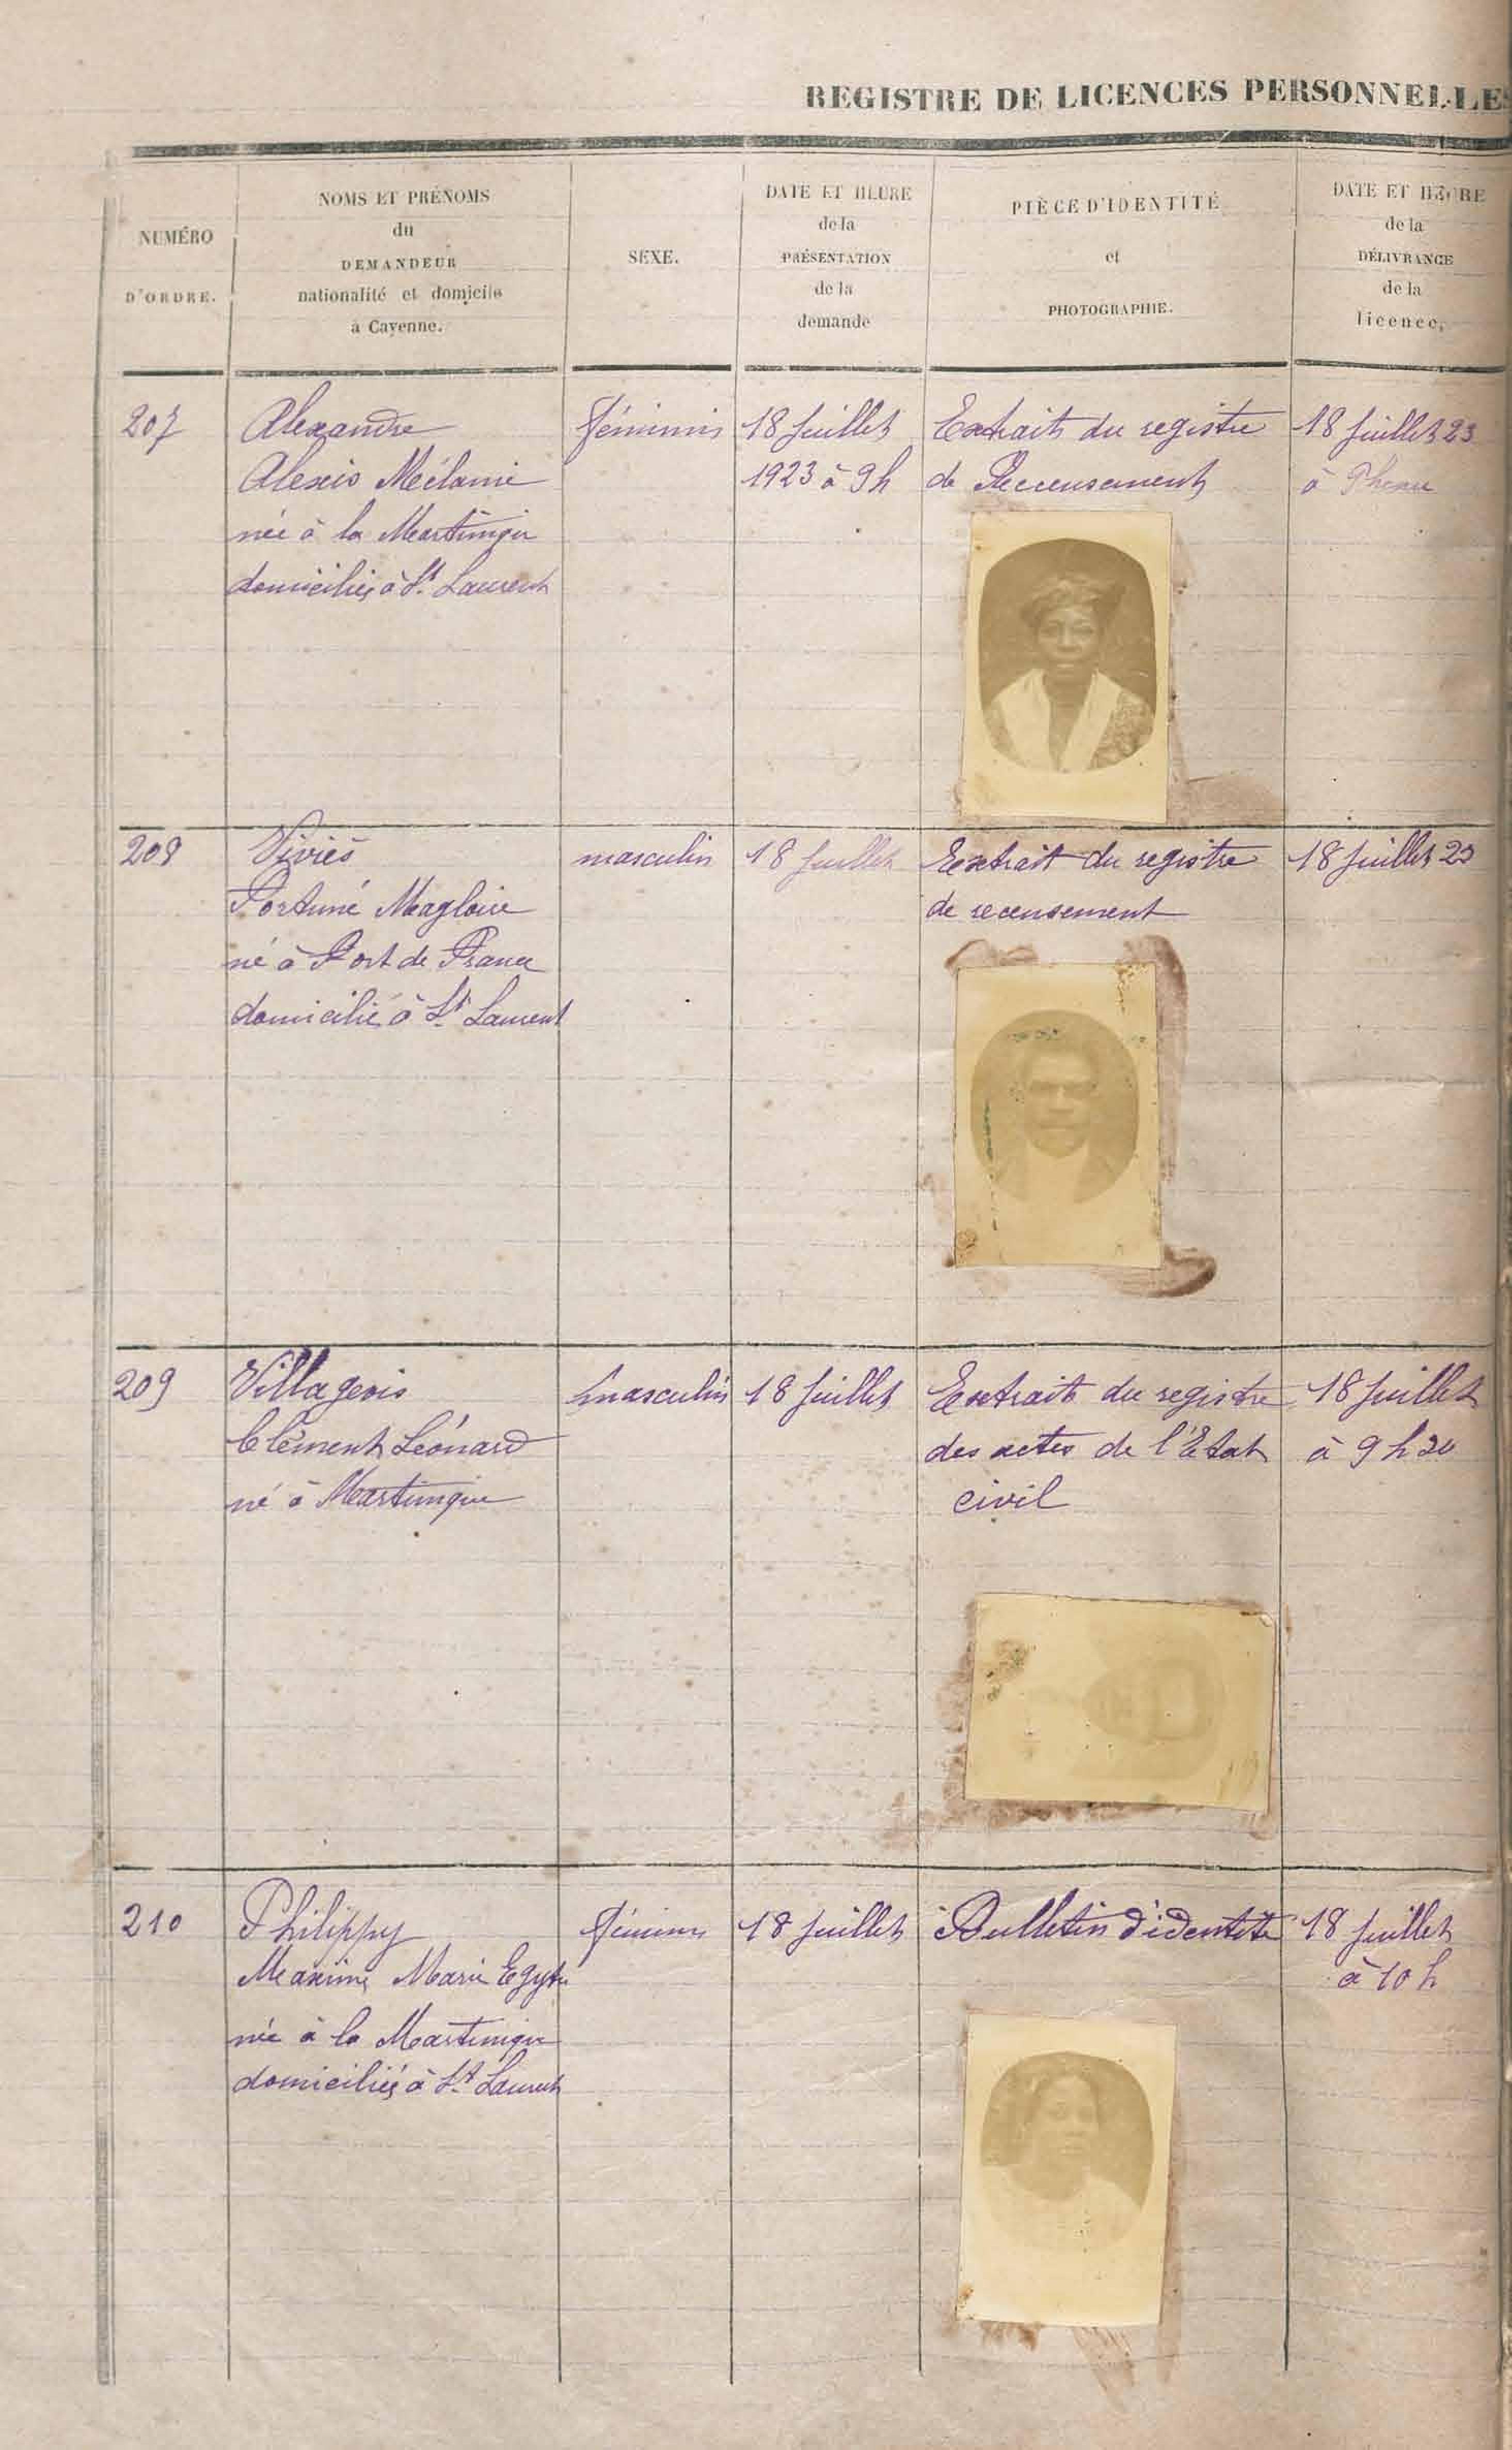 REGISTRE DE LICENCES PERSONNELLES
NUMÉRO
D'ORDRE.
NOMS ET PRÉNOMS
du
DEMANDEUR
nationalité et domicile
à Cayenne.
SEXE.
DATE ET HEURE
de la
PRÉSENTATION
de la
demande
PIÈCE D'IDENTITÉ
et
PHOTOGRAPHIE.
DATE ET HEURE
de la
DÉLIVRANCE
de la
licence,
207
Alexandre
Alexis Mélanie
née à la Martinique
domiciliée à St Laurent
féminin
18 Juillet
1923 à 9h
Extrait du registre
de Recensement
18 Juillet 23
à 9 heure
208
Viviès
Fortuné Magloire
né à Fort de France
domicilié à St Laurent
masculin
18 Juillet
Extrait du registre
de recensement
18 Juillet 23
209
Villageois
Clément Léonard
né à Martinique
masculin
18 Juillet
Extrait du registre
des actes de l'Etat
civil
18 Juillet
à 9 h 20
210
Philippy
Maxime Marie
née à la Martinique
domiciliée à St Laurent
féminin
18 Juillet
Bulletin d'identité
18 Juillet
à 10 h